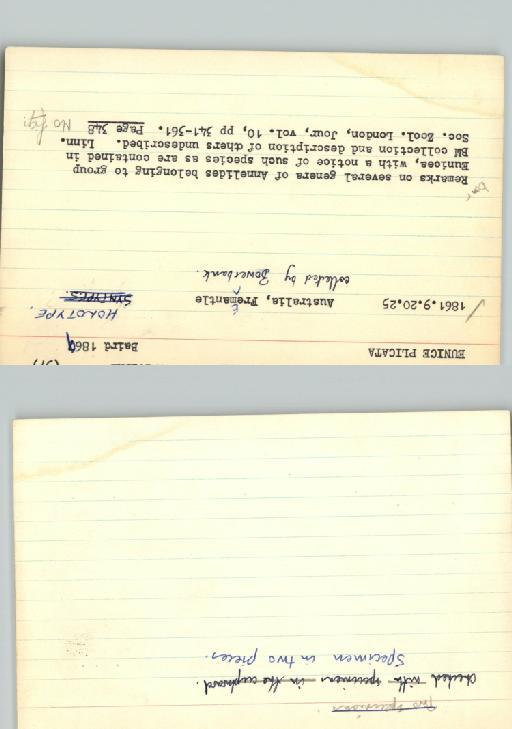 EUNICE PLICATA Baird 1869
HOLOTYPE.
SYNTYPES.
1861.9.20.25 Australia, Fremantle
collected by Bowerbank.
Remarks on several genera of Annelides belonging to group
Eunicea, with a notice of such species as are contained in
BM collection and description of others undescribed. Linn.
Soc. Zool. London, Jour, vol. 10, pp 341-361. Page 348
No fig:
Two specimens
checked with specimen in the cupboard.
Specimen in two pieces.